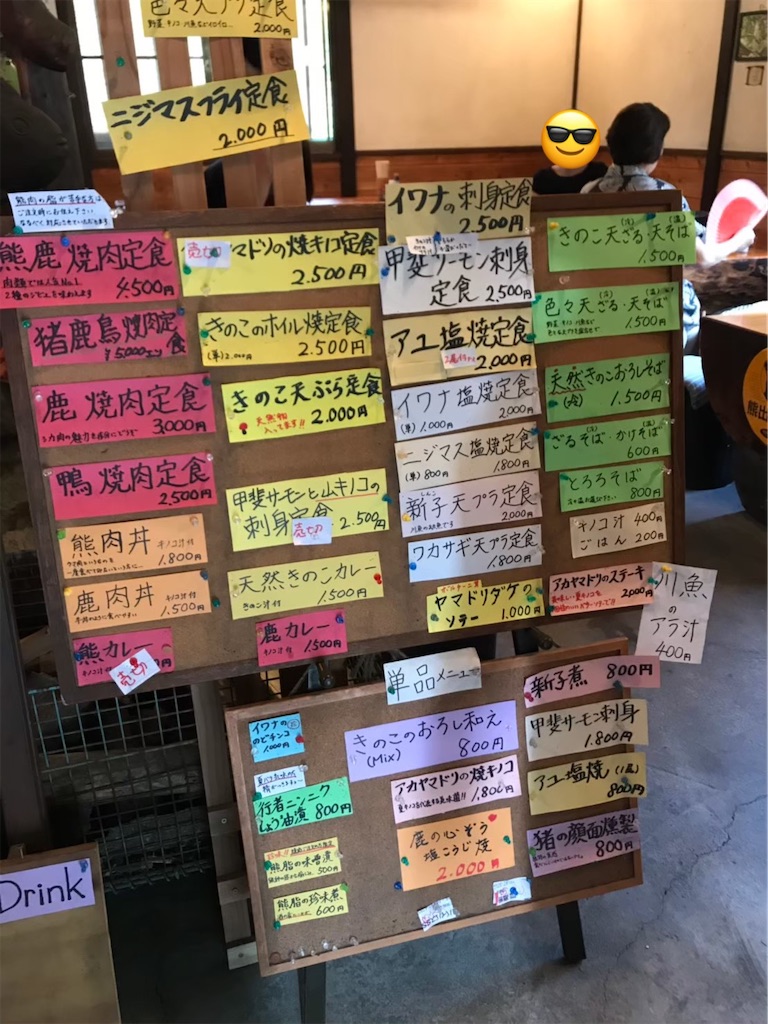 色々天プラ定食
2.000円
ニジマスフライ定食
2.000円
熊肉の脂が苦手な方は
ご注文時にお伝え下さい
なるべく対応させていただきます
熊鹿焼肉定食
4.500円
猪鹿鳥焼肉定食
¥5000より
鹿焼肉定食
3.000円
鴨焼肉定食
2.500円
熊肉丼 キノコ汁付
1.800円
鹿肉丼 キノコ汁付
1.500円
熊カレー
キノコ汁付
売切
売切
マドリの焼キノコ定食
2.500円
きのこのホイル焼定食
(単)2.000円 2.500円
きのこ天ぷら定食
天然物
入ってます!!
2.000円
甲斐サーモンとムキノコの
刺身定食 2.500円
売切
天然きのこカレー
きのこ汁付 1.500円
鹿カレー
キノコ汁付 1.500円
イワナの刺身定食
2.500円
甲斐サーモン刺身
定食 2,500円
アユ塩焼定食
2.000円
イワナ塩焼定食
(単)1.000円 2,000円
ニジマス塩焼定食
(単)800円 1.800円
新子天プラ定食
2,000円
ワカサギ天プラ定食
1.800円
ヤマドリダケの
ソテー 1.000円
きのこ天ざる・天そば
1.500円
色々天ざる・天そば
1.500円
天然きのこおろしそば
(冷) 1.500円
ざるそば・かけそば
600円
とろろそば
800円
キノコ汁 400円
ごはん 200円
アカヤマドリのステーキ
2,000円
川魚
の
アラ汁
400円
単品メニュー
イワナの
のどチンコ
1.000円
行者ニンニク
しょう油漬 800円
熊脂の味噌漬
500円
熊脂の珍味煮
600円
きのこのおろし和え
(Mix) 800円
アカヤマドリの焼キノコ
1,800円
鹿の心ぞう
塩こうじ焼
2.000円
新子煮 800円
甲斐サーモン刺身
1.800円
アユ塩焼(1匹)
800円
猪の顔面燻製
800円
Drink